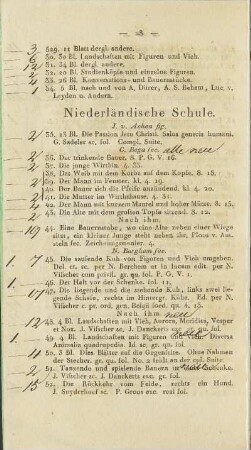 — 28 —
3 629. 11 Blatt dergl. andere.
6 30. 30 Bl. Landschaften mit Figuren und Vieh.
12 31. 34 Bl. dergl. andere.
2 32. 20 Studienköpfe und einzelne Figuren.
2 33. 26 Konversations- und Bauernstücke.
1 34. 6 Bl. nach und von A. Dürer, A. S. Beham, Luc. v.
Leyden u. Andern.
Niederländische Schule.
J. v. Achen fig.
2 35. 13 Bl. Die Passion Jesu Christi. Salus generis humani.
G. Sadeler sc. fol. Compl. Suite.
C. Bega fec. alle neue
2 36. Der trinkende Bauer. 8. P. G. V. 16.
37. Die junge Wirthin. 4. 35.
38. Das Weib mit dem Korbe auf dem Kopfe. 8. 18.
39. Der Mann im Fenster. kl. 4. 19.
40. Der Bauer sich die Pfeife anzündend. kl. 4. 20.
41. Die Mutter im Wirthshause. 4. 31.
42. Der Mann mit kurzem Mantel und hoher Mütze. 8. 15.
43. Die Alte mit dem großen Topfe sitzend. 8. 12.
Nach ihm.
44. Eine Bauernstube, wo eine Alte neben einer Wiege
sitzt, ein kleiner Junge steht neben ihr.
fec. Zeichnungsmanier.
N. Berghem fec.
45. Die saufende Kuh von Figuren und Vieh umgeben.
Del. et. sc. per N. Berchem et in lucem edit. per N.
Vischer cum privil. gr. qu. fol. P. G. V. 1.
46. Der Halt vor der Schenke. fol. 11.
47. Die liegende und die stehende Kuh, links zwei lie-
gende Schafe, rechts im Hintergr. Kühe. Ed. per N.
Nach ihm neu
48. 4 Bl. Landschaften mit Vieh, Aurora, Meridies, Vesper
et Nox. J. Vischer sc. J. Danckerts exc. gr. qu. fol.
49. 4 Bl. Landschaften mit Figuren und Vieh. Diversa
Animalia quadrupedia. Id. sc. gr. qu. fol.
50. 3 Bl. Dies Blätter auf die Gegenseite. Ohne Nahmen
der Stecher. gr. qu. fol. No. 2 fehlt an der cpl. Suite.
51. Tanzende und spielende Bauern in
J. Vischer sc. J. Danckerts exc. gr. fol.
52. Die Rückkehr vom Felde, rechts ein Hund.
J. Suyderhoef sc. P. Goos exc. real fol.